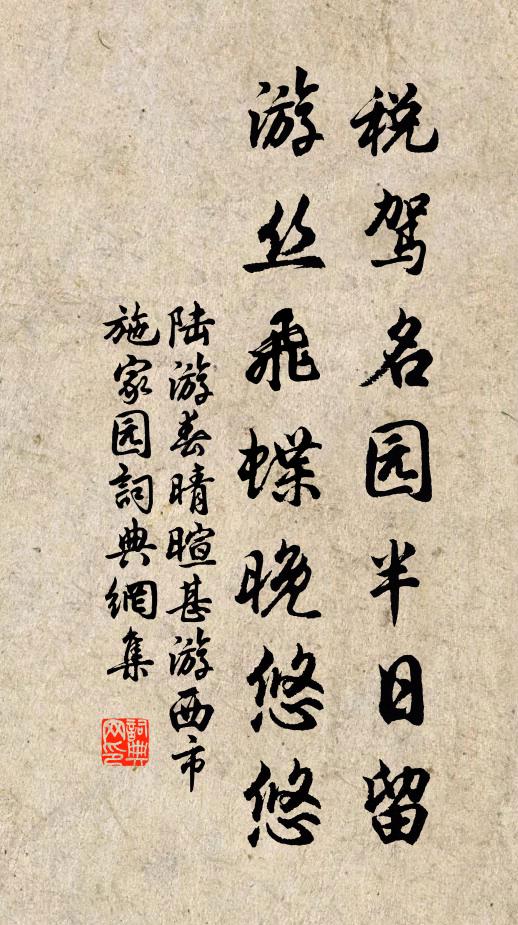 税驾名园半日留
游丝飞蝶晚悠悠
陆游春晴暄甚游西市
施家园詞典網集
詞典网印